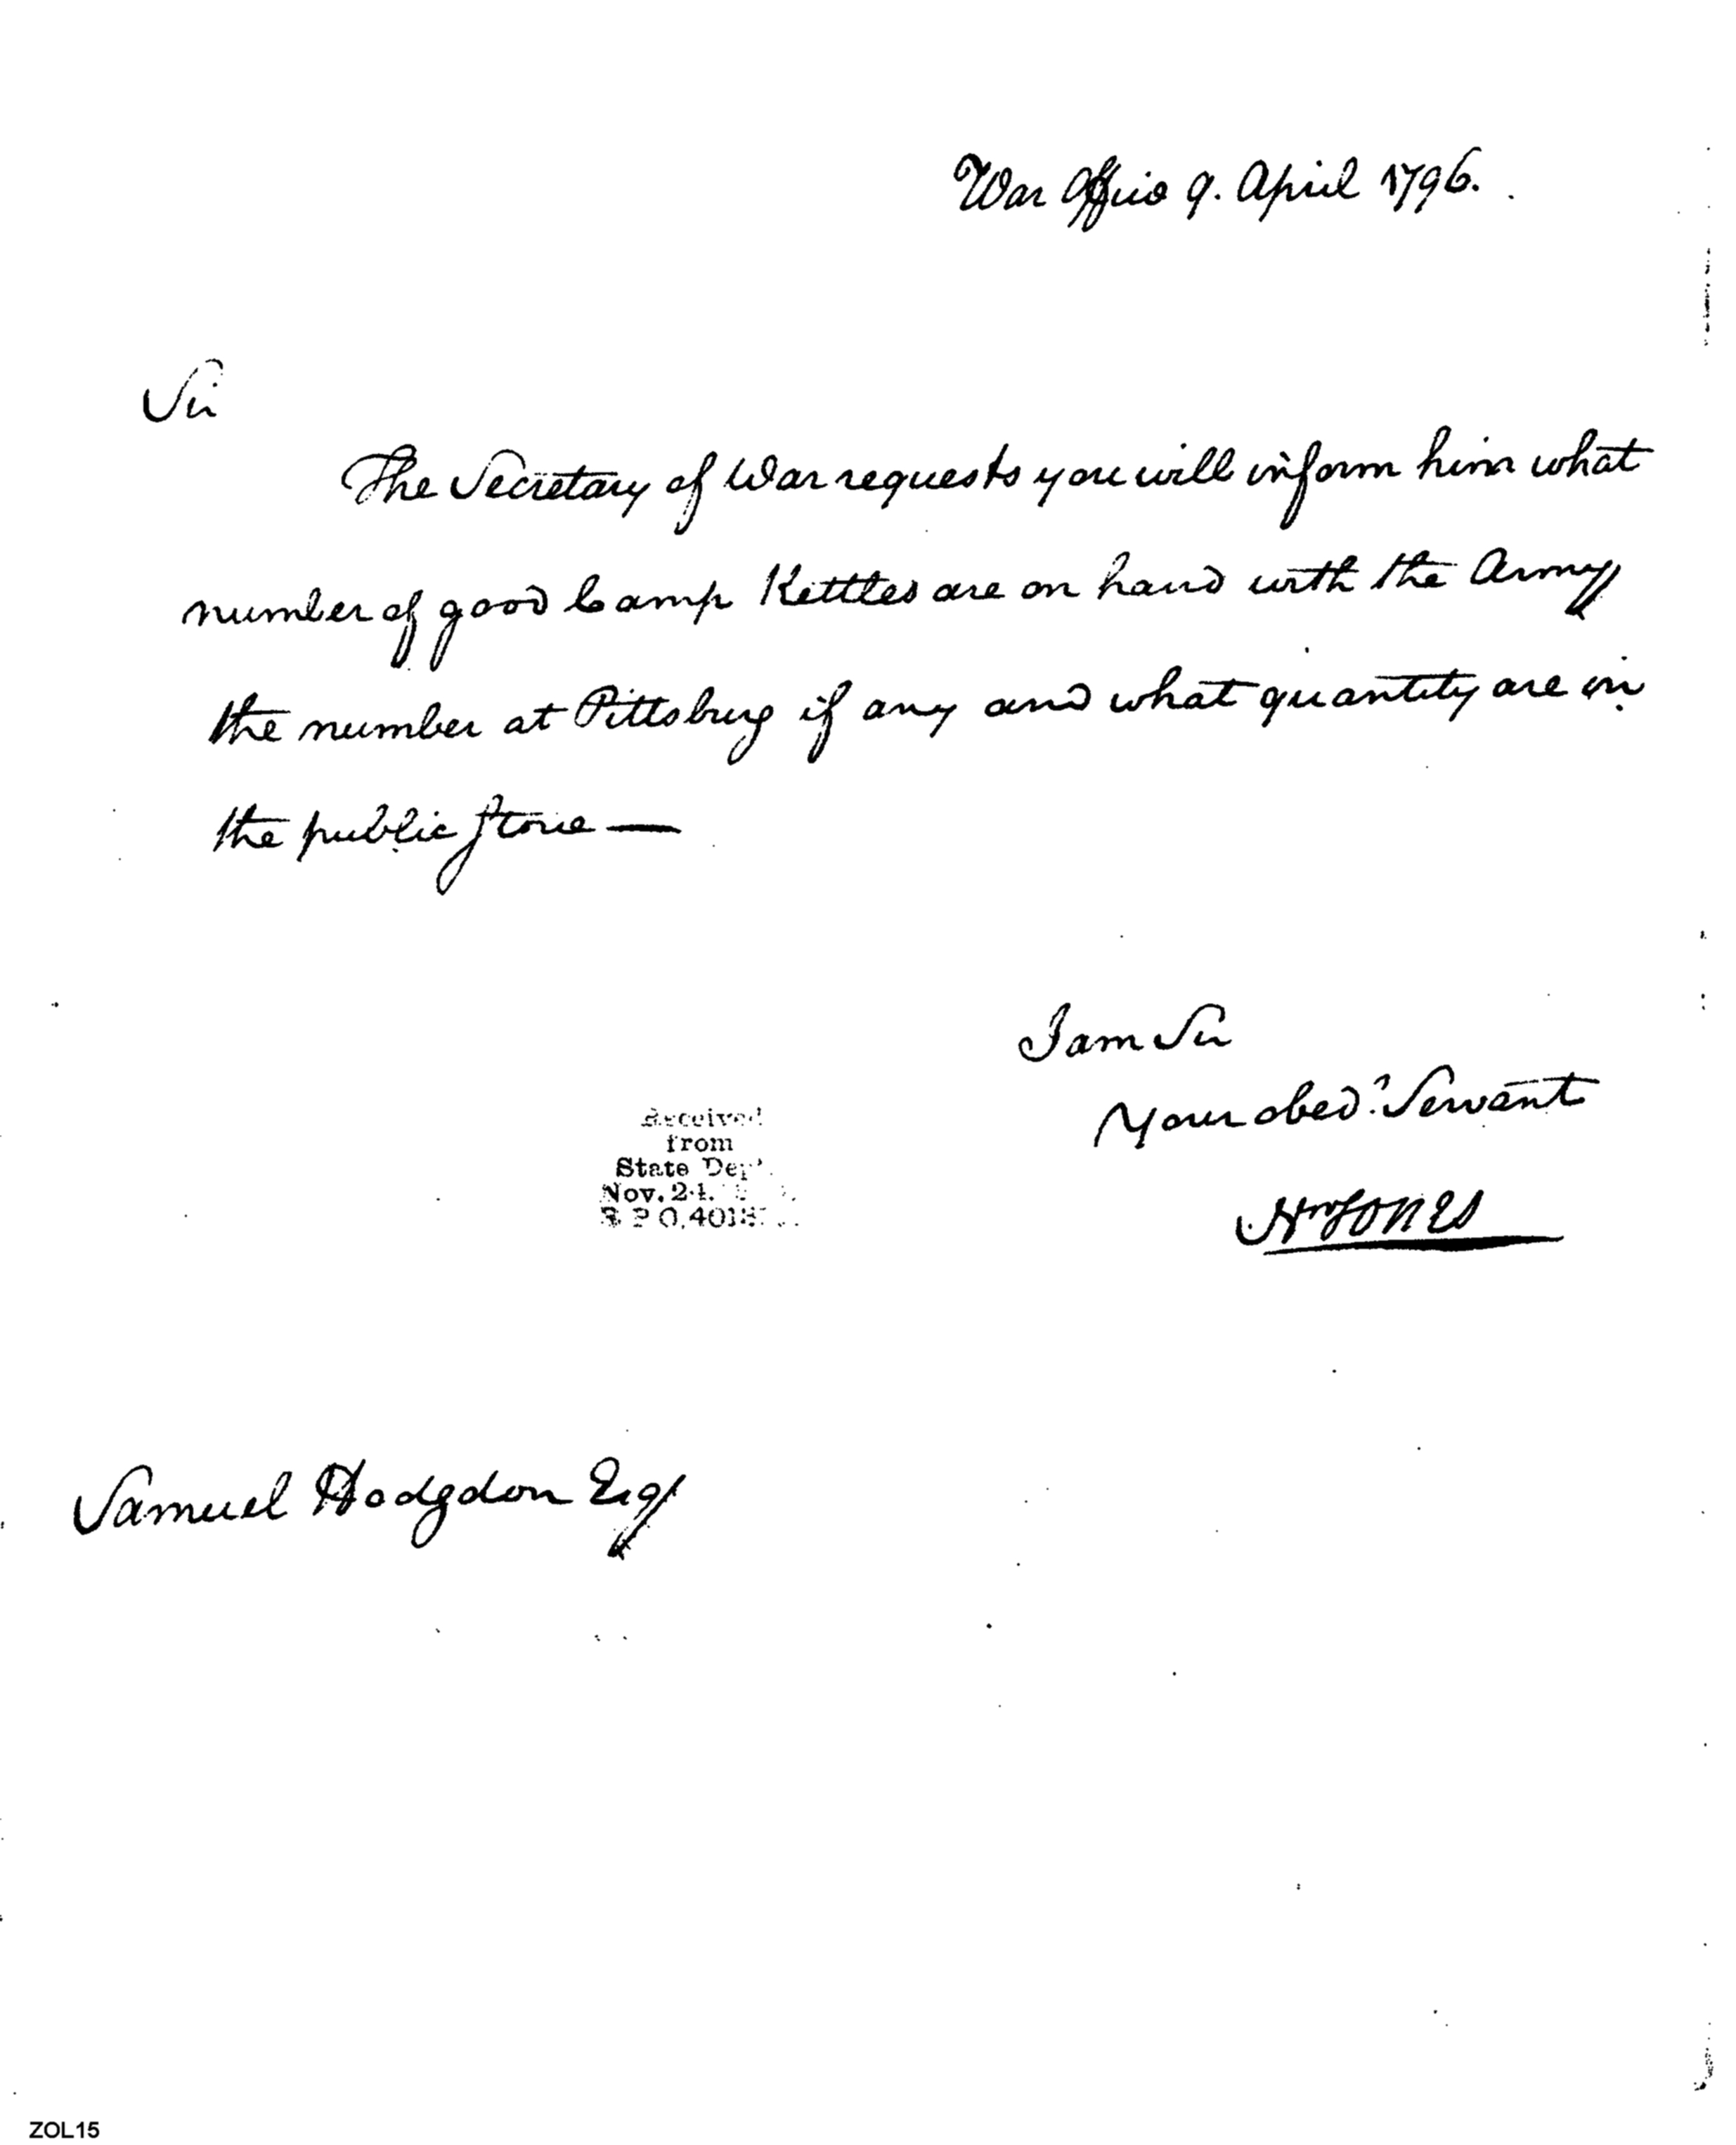 War Office 9. April 1796.
Sir
The Secretary of War requests you will inform him what
number of good Camp Kettles are on hand with the Army
the number at Pittsburg if any and what quantity are in
the public Store —
I am Sir
Your obed.t Servant
Received
from
State Dep't
Nov. 24.
R P O, 4018
Wm Jones
Samuel Hodgdon Esqr
ZOL15